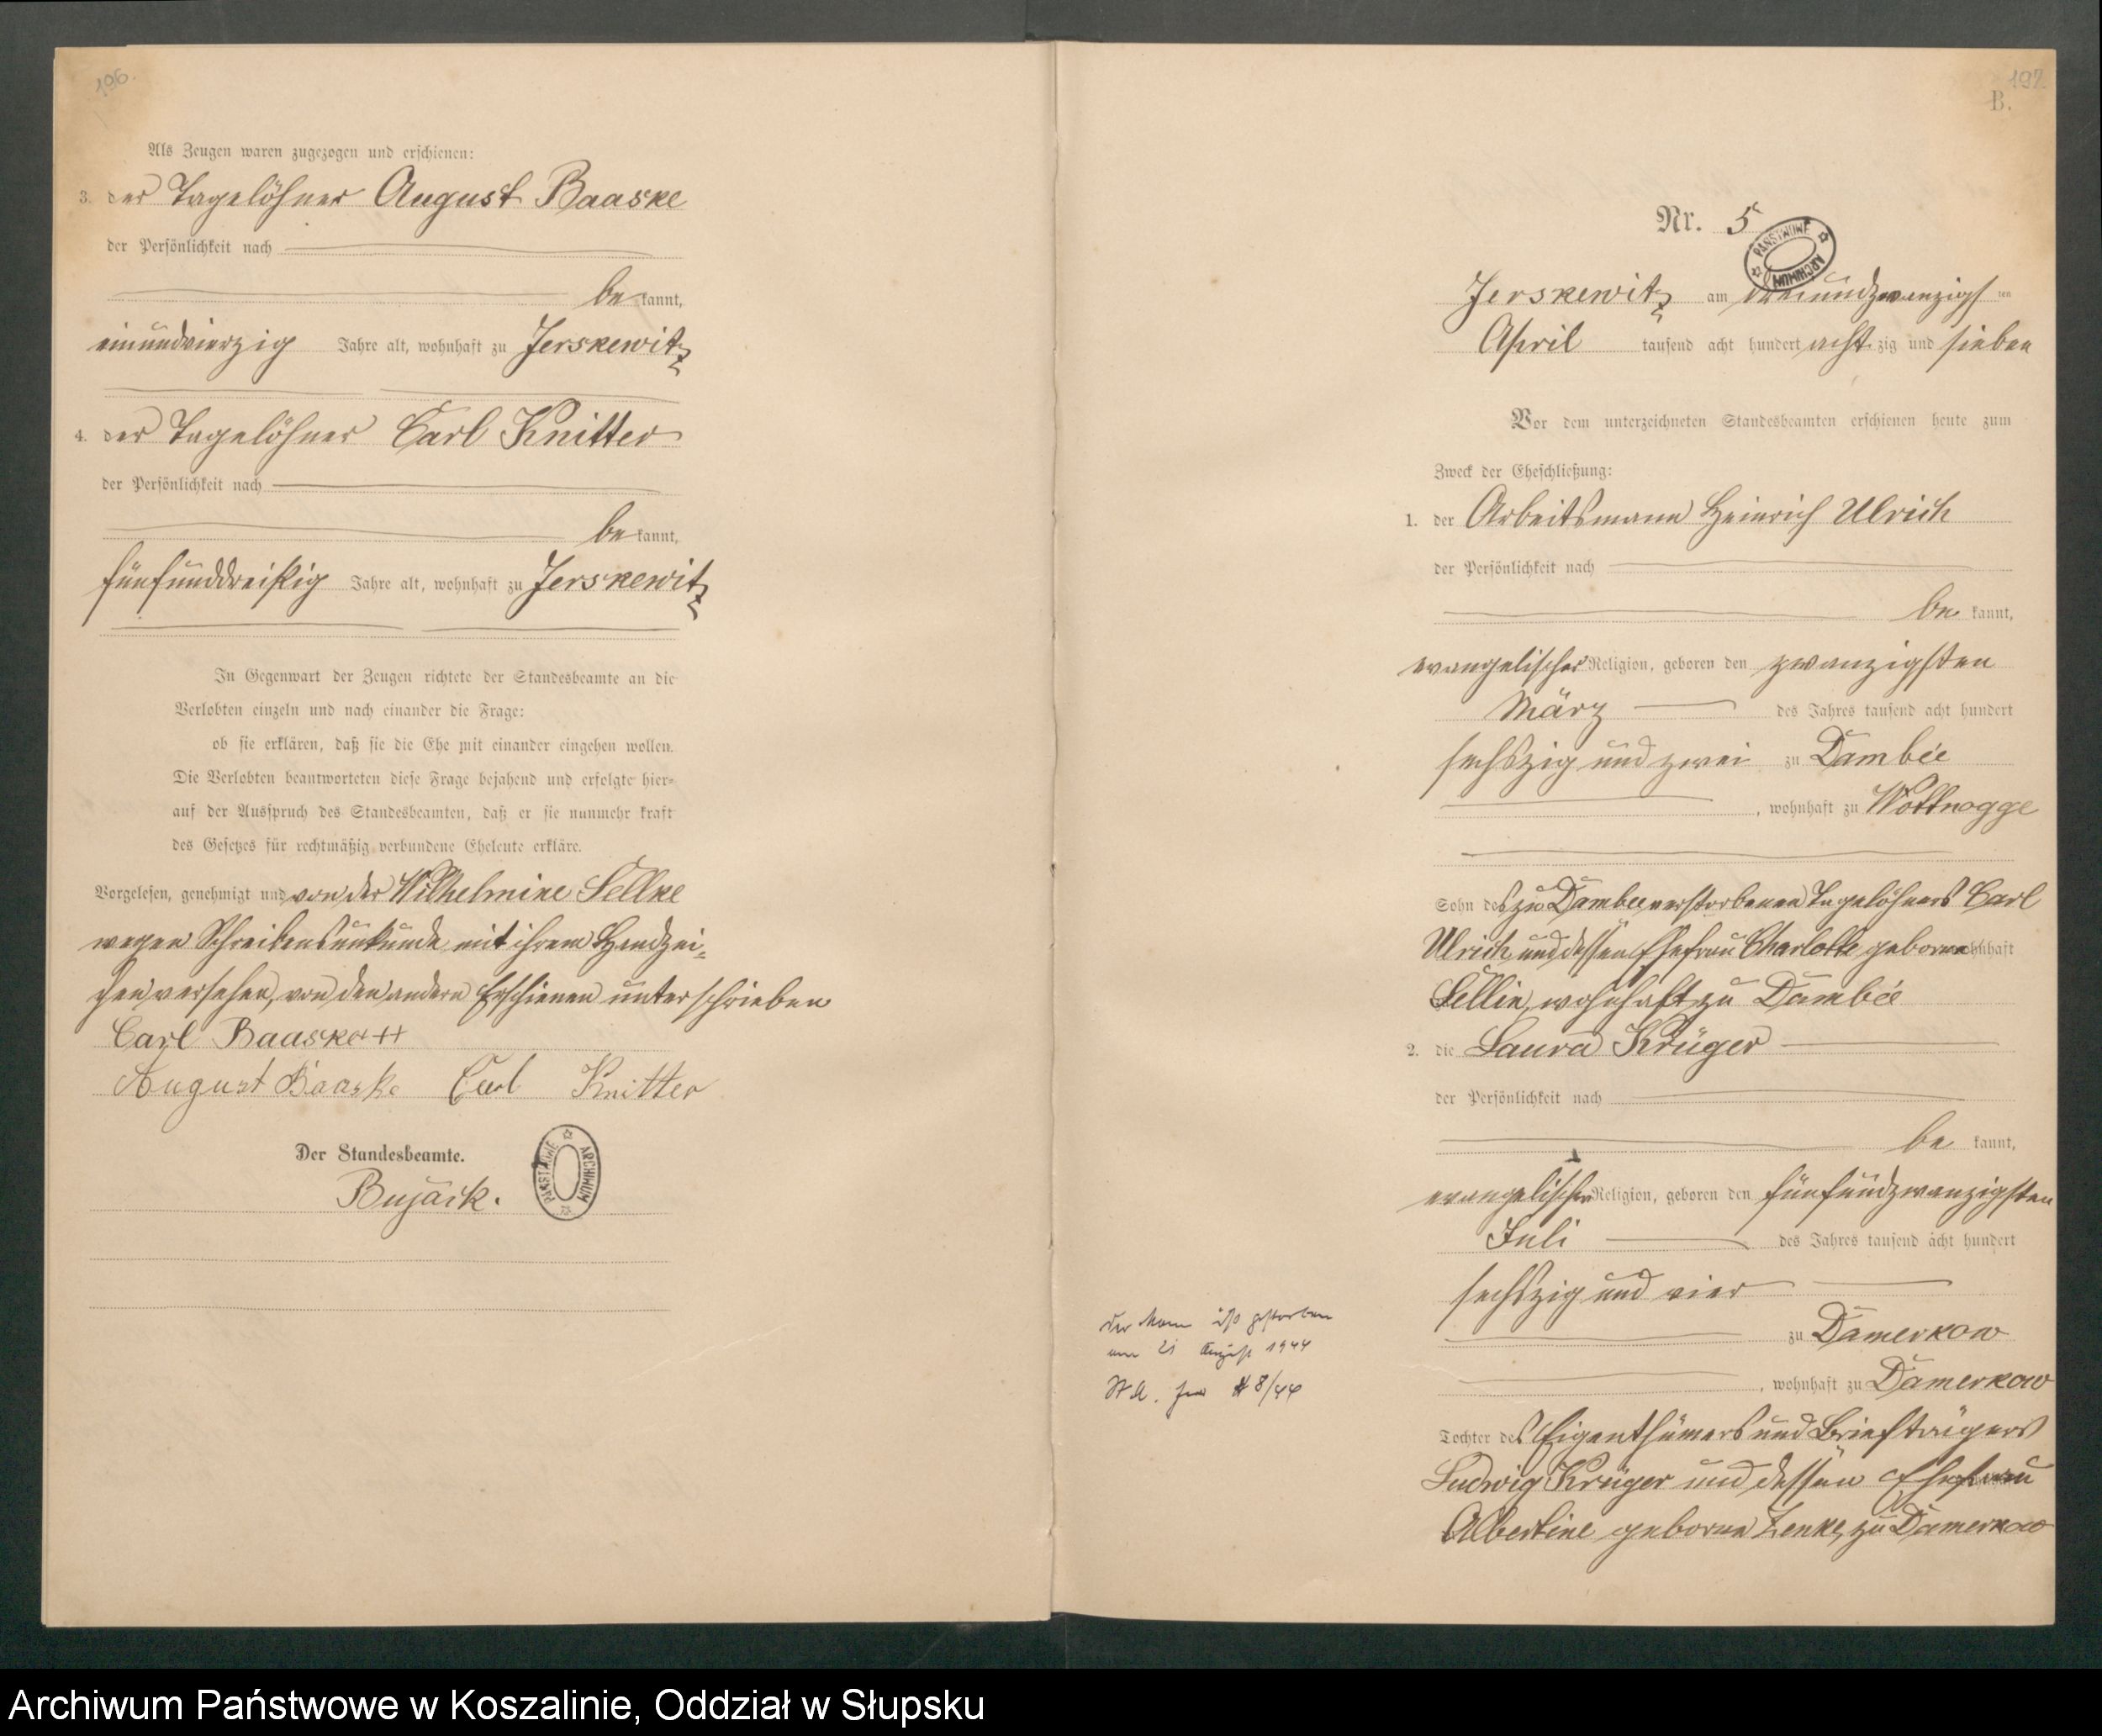 196.
Als Zeugen waren zugezogen und erschienen:
3. der Tagelöhner August Baaske
der Persönlichkeit nach
be kannt,
einundvierzig Jahre alt, wohnhaft zu Jerskewitz
4. der Tagelöhner Carl Knitter
der Persönlichkeit nach
be kannt,
fünfunddreißig Jahre alt, wohnhaft zu Jerskewitz
In Gegenwart der Zeugen richtete der Standesbeamte an die
Verlobten einzeln und nach einander die Frage:
ob sie erklären, daß sie die Ehe mit einander eingehen wollen.
Die Verlobten beantworteten diese Frage bejahend und erfolgte hier-
auf der Ausspruch des Standesbeamten, daß er sie nunmehr kraft
des Gesetzes für rechtmäßig verbundene Eheleute erkläre.
Vorgelesen, genehmigt und von der Wilhelmine Sellke
wegen Schreibensunkunde mit ihrem Handzei-
chen versehen, von den andern Erschienen unterschrieben
Carl Baaske +++
August Baaske Carl Knitter
Der Standesbeamte.
PAŃSTWOWE ARCHIWUM
Bujack.
197.
B.
Nr. 5
PAŃSTWOWE ARCHIWUM
Jerskewitz am dreiundzwanzigsten
April tausend acht hundert achtzig und sieben
Vor dem unterzeichneten Standesbeamten erschienen heute zum
Zweck der Eheschließung:
1. der Arbeitsmann Heinrich Ulrich
der Persönlichkeit nach
be kannt,
evangelischer Religion, geboren den zwanzigsten
März des Jahres tausend acht hundert
sechszig und zwei zu Dambée
, wohnhaft zu Wottnogge
Sohn des zu Dambee verstorbenen Tagelöhners Carl
Ulrich und dessen Ehefrau Charlotte geborne wohnhaft
Sellin, wohnhaft zu Dambée
2. die Laura Krüger
der Persönlichkeit nach
be kannt,
evangelischer Religion, geboren den fünfundzwanzigsten
Juli des Jahres tausend acht hundert
sechszig und vier
zu Damerkow
, wohnhaft zu Damerkow
Tochter des Eigenthümers und Briefträgers
Ludwig Krüger und dessen Ehefrau
Albertine geborne Zenke, zu Damerkow
der Mann ist gestorben
am 21 August 1944
St A. 8/44
Archiwum Państwowe w Koszalinie, Oddział w Słupsku